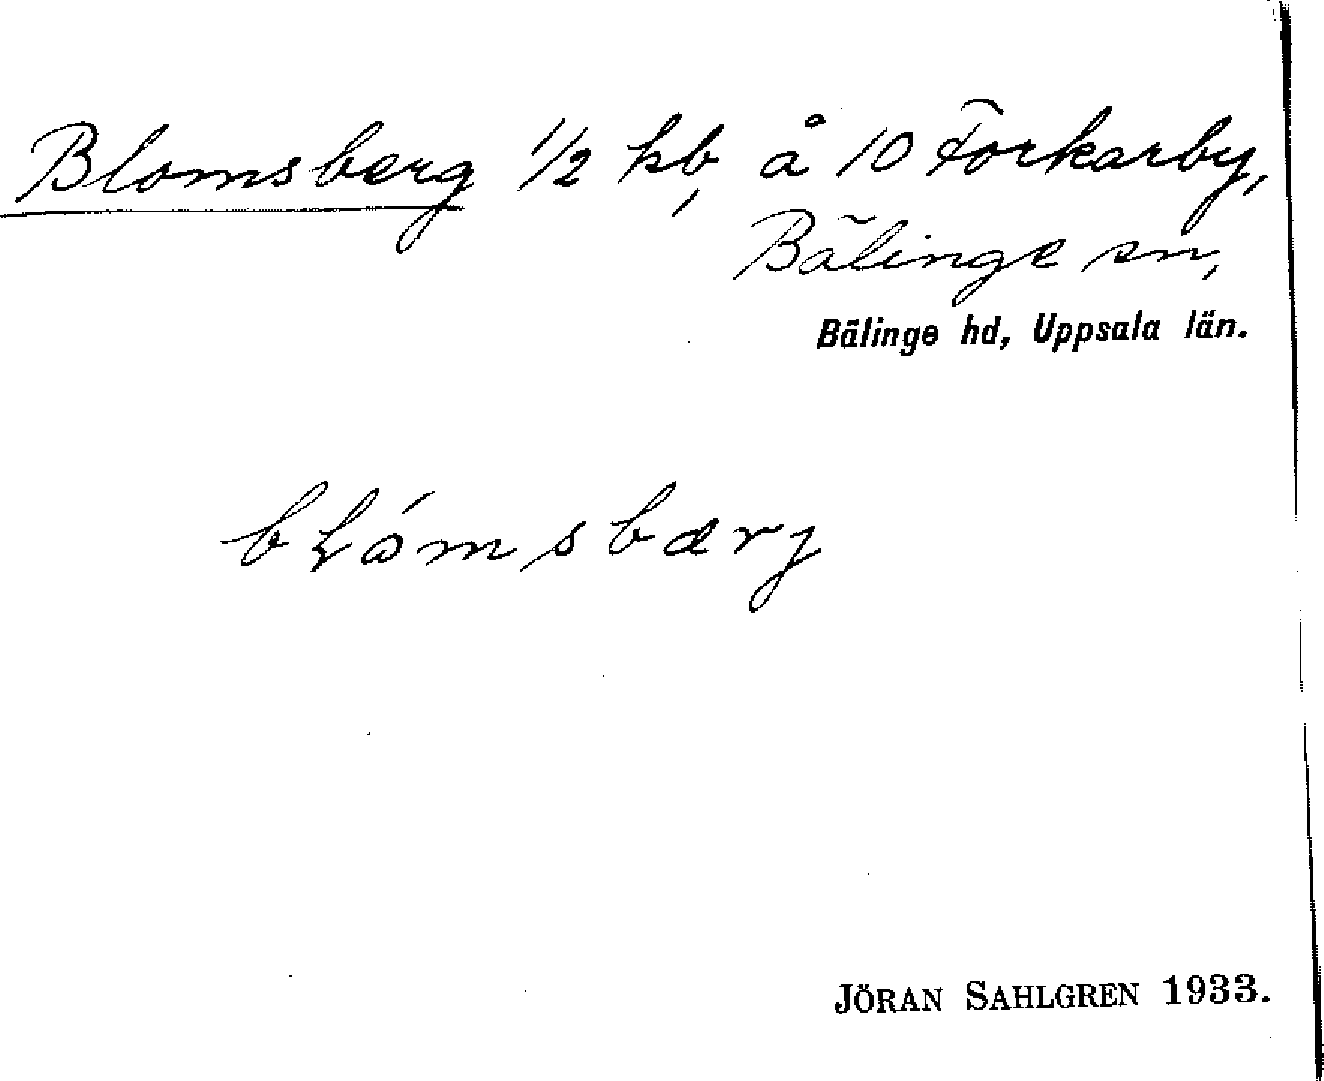 Blomsberg 1/2 hb, å 10 Forkarby,
Bälinge sn,
Bälinge hd, Uppsala län.
bɫómsbærj
JÖRAN SAHLGREN 1933.